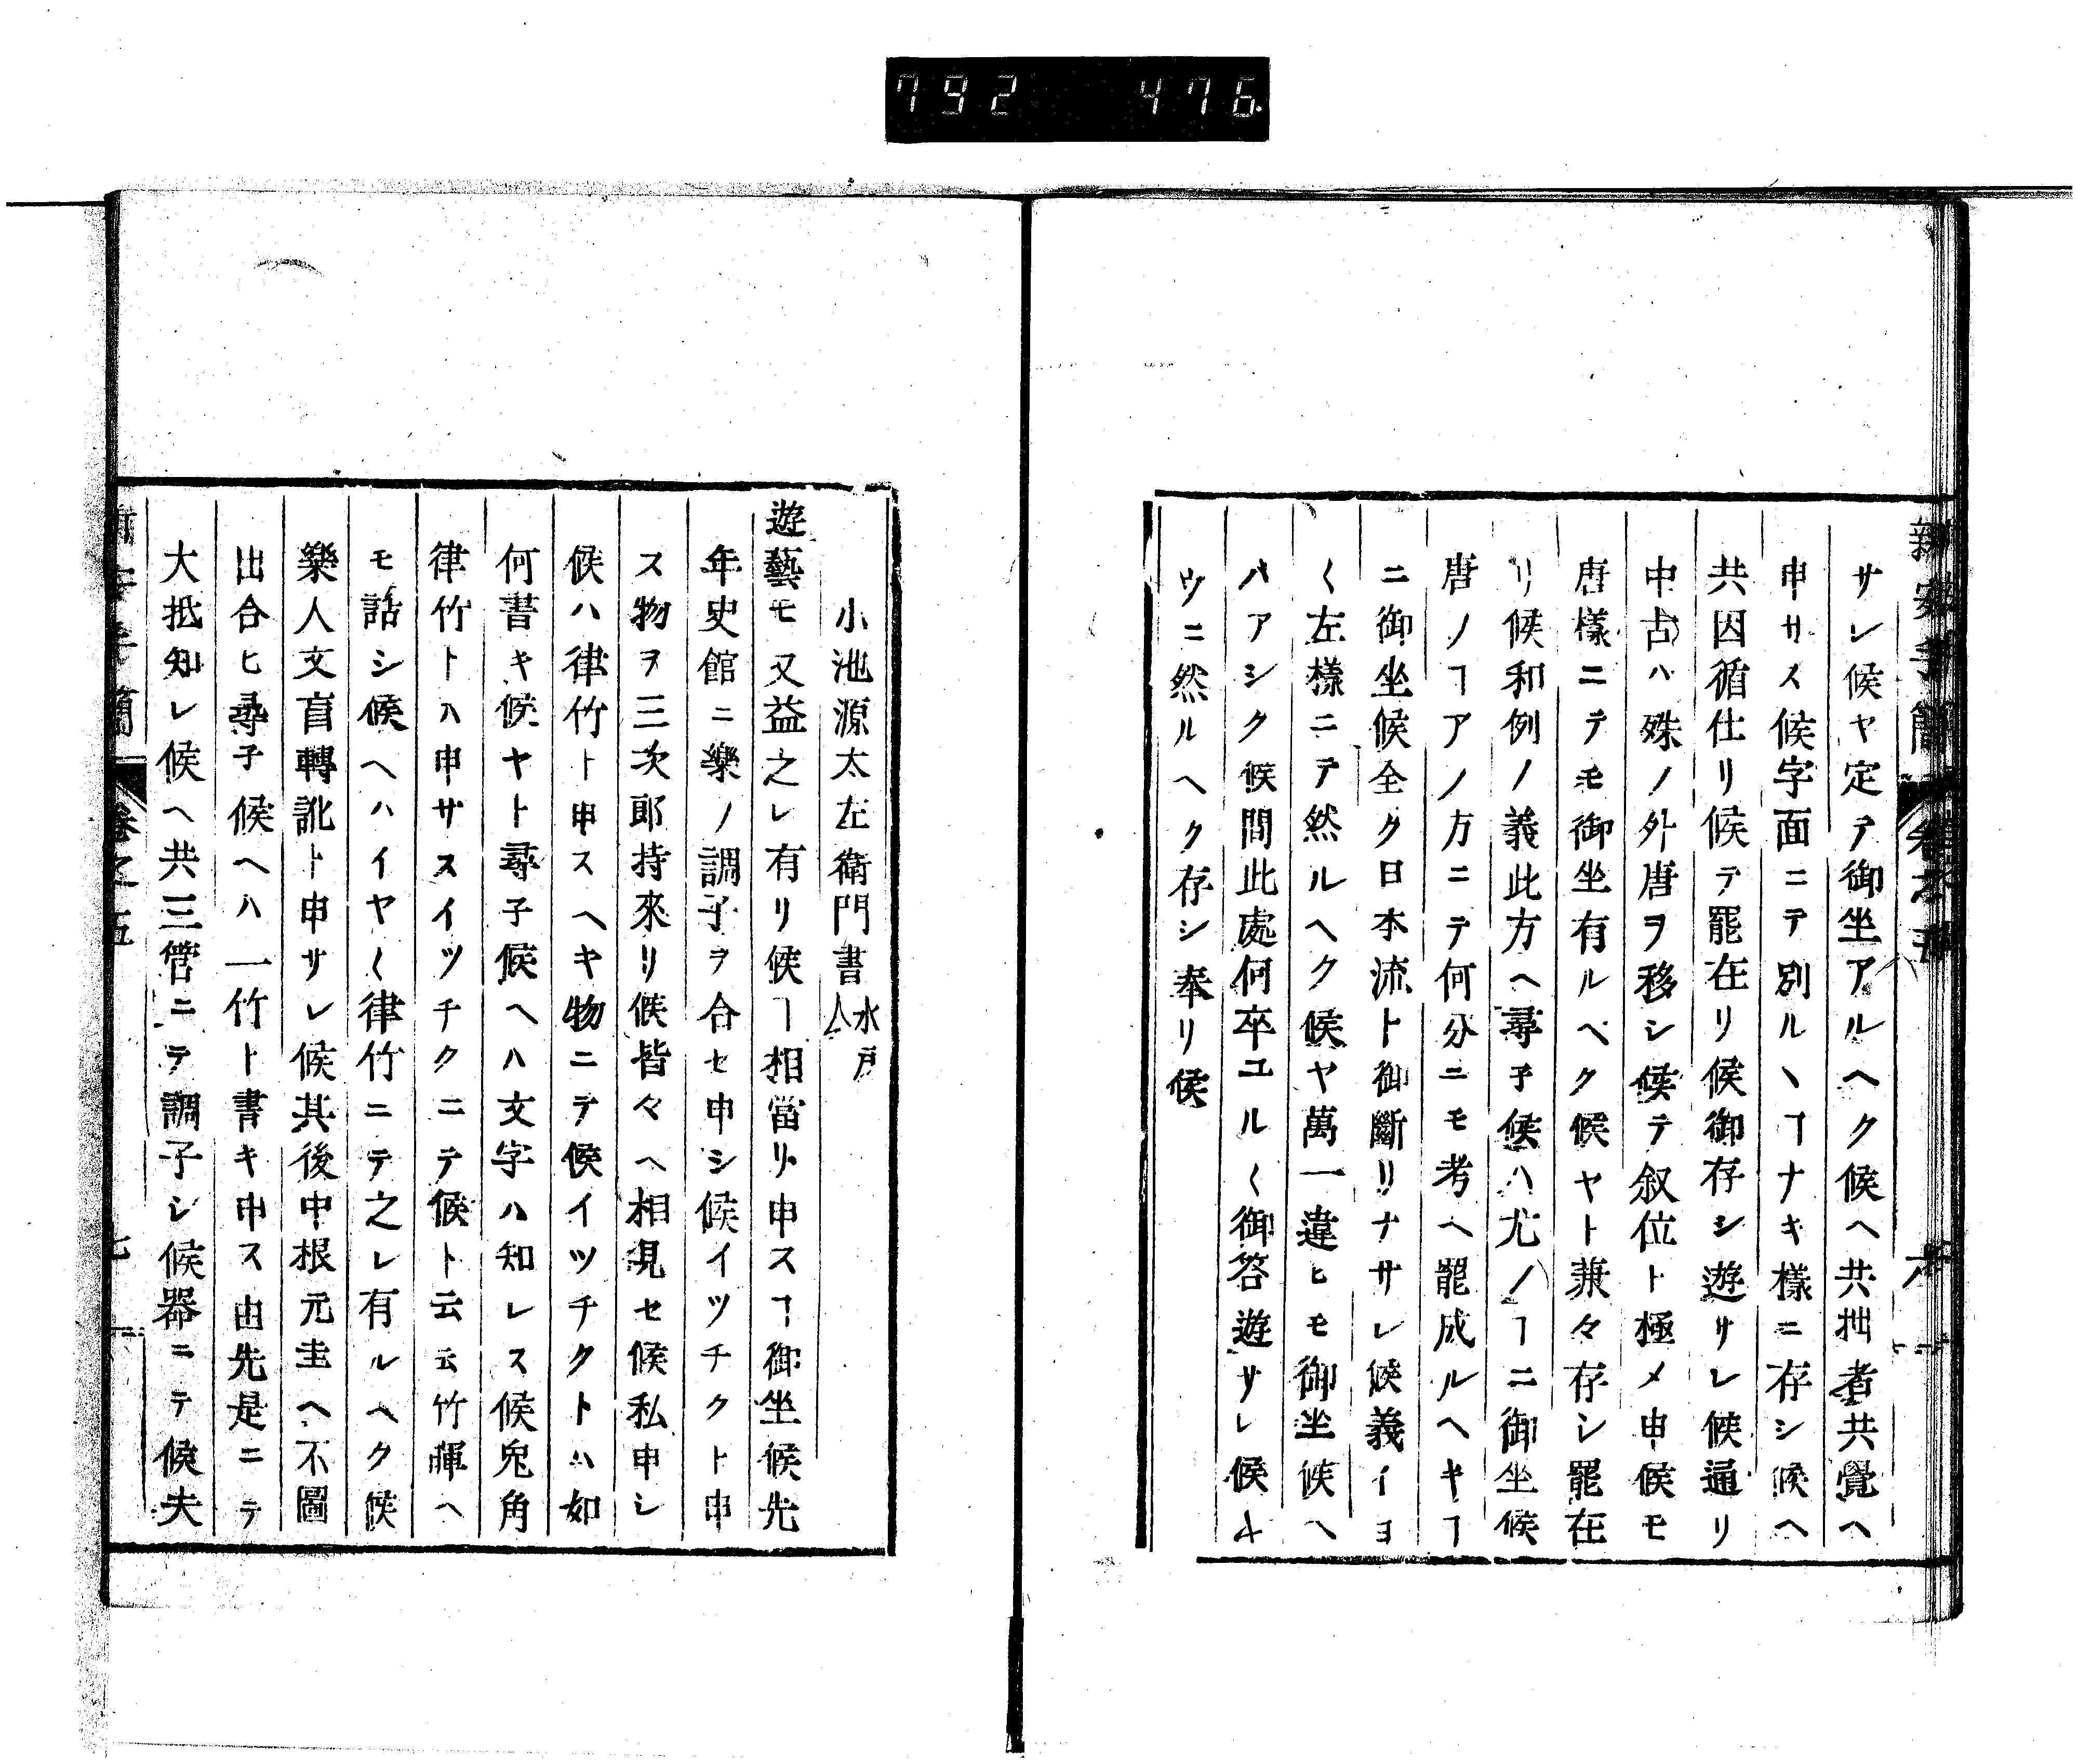 792 476
新安手簡 卷之五 六
サレ候ヤ定テ御坐アルヘク候ヘ共拙者共覺ヘ
申サス候字面ニテ別ルヽヿナキ樣ニ存シ候ヘ
共因循仕リ候テ罷在リ候御存シ遊サレ候通リ
中古ハ殊ノ外唐ヲ移シ候テ叙位ト極メ申候モ
唐樣ニテモ御坐有ルベク候ヤト兼々存シ罷在
リ候和例ノ義此方ヘ尋子候ハ尤ノヿニ御坐候
唐ノヿアノ方ニテ何分ニモ考ヘ罷成ルヘキヿ
ニ御坐候全ク日本流ト御斷リナサレ候義イヨ
〱左樣ニテ然ルヘク候ヤ萬一違ヒモ御坐候ヘ
バアシク候間此處何卒ユル〱御答遊サレ候ヤ
ウニ然ルヘク存シ奉リ候
小池源太左衛門書 水戸人
遊藝モ又益之レ有リ候ヿ相當リ申スヿ御坐候先
年史館ニ樂ノ調子ヲ合セ申シ候イツチクト申
ス物ヲ三次郎持來リ候皆々ヘ相見セ候私申シ
候ハ律竹ト申スヘキ物ニテ候イツチクトハ如
何書キ候ヤト尋子候ヘハ文字ハ知レス候兎角
律竹トハ申サスイツチクニテ候ト云云竹暉ヘ
モ話シ候ヘハイヤ〱律竹ニテ之レ有ルヘク候
樂人文盲轉訛ト申サレ候其後中根元圭ヘ不圖
出合ヒ尋子候ヘハ一竹ト書キ申ス由先是ニテ
大抵知レ候ヘ共三管ニテ調子シ候器ニテ候夫
新安手簡 卷之五 七